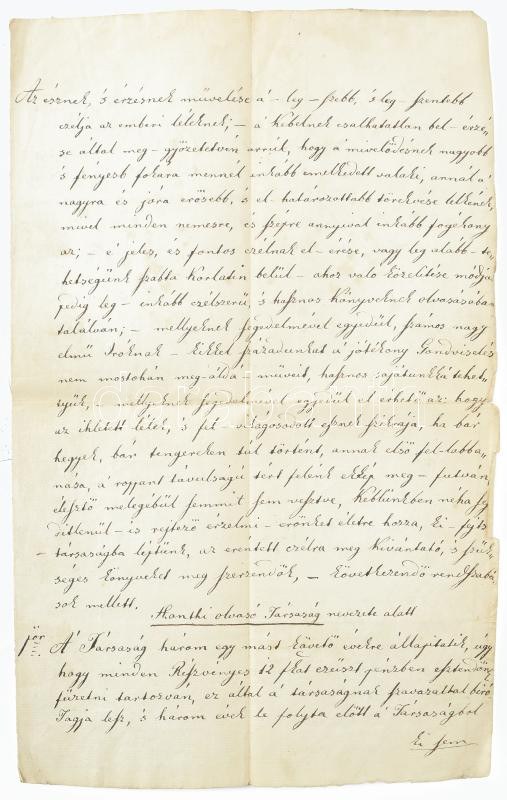 Az észnek, 's érzésnek művelése á - leg - szebb, 's leg - szentebb
czélja az emberi léleknek; - á kebelnek csalhatatlan bel - érzé-
se által meg - győzetetvén arrúl, hogy a művelődésnek nagyobb
's fenyesb fokára mennél inkább emelkedett valaki, annál á
nagyra és jóra erősebb, 's el - határozottabb törekvése lelkének,
mivel minden nemesre, és szépre annyival inkább fogékony
az; - é jeles, és fontos czélnak el - érése, vagy leg alább - te-
hetségünk szabta korlatin belül - ahoz való közelítése módja
pedig leg - inkább czélszerű, 's hasznos könyveknek olvasásába
találván; - mellyeknek segedelmével egyedűl, számos nagy
elmű Iróknak - kikkel századunkat a jótékony Gondviselés
nem mostohán meg - áldá műveit, hasznos sajátunkká tehet-
jük, - mellyeknek segedelmével egyedűl el érhető az: hogy
az ihletett lélek, 's fel - világosodott észnek szikrája, ha bár
hegyek, bár tengereken túl történt, annak első fel - lobba-
nása, a roppant távulságú tért felénk meg - futván,
élesztő melegébűl semmit sem vesztve, keblünkben néha
is rejtező érzelmi - erőnket életre hozza, ki - fejts
- társaságba léptünk, az érentett czélra meg kivántató, 's szük-
séges könyveket meg szerzendők, - következendő rendszabá-
sok mellett.
Kanthi olvasó Társaság nevezete alatt
1ör A' Társaság három egy mást követő évekre állapitatik, úgy
hogy minden Részvényes 12 fkat ezüst pénzben esztendőn
fizetni tartozván, ez által á társaságnak szavazattal biró
Tagja lesz, 's három évek le folyta előtt á Társaságból
ki sem